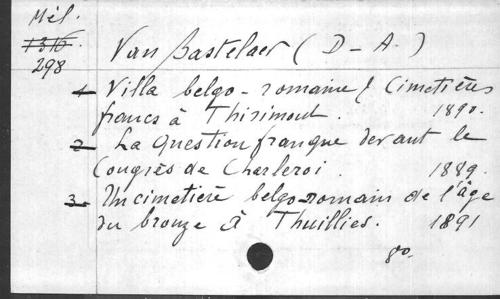 Mél.
1316.
298
Van Bastelaer (D-A.)
1 Villa belgo-romaine & Cimetières
francs à Thirimont. 1890.
2 La Question franque devant le
Congrès de Charleroi. 1889.
3 Un cimetière belgo-romain de l'âge
du bronze à Thuillies. 1891
8o.